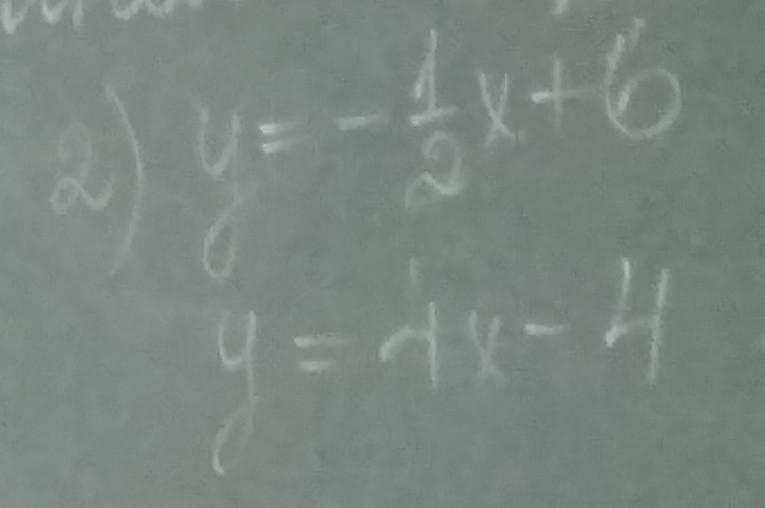 2) y = - 1/2 x + 6
y = 1x - 4